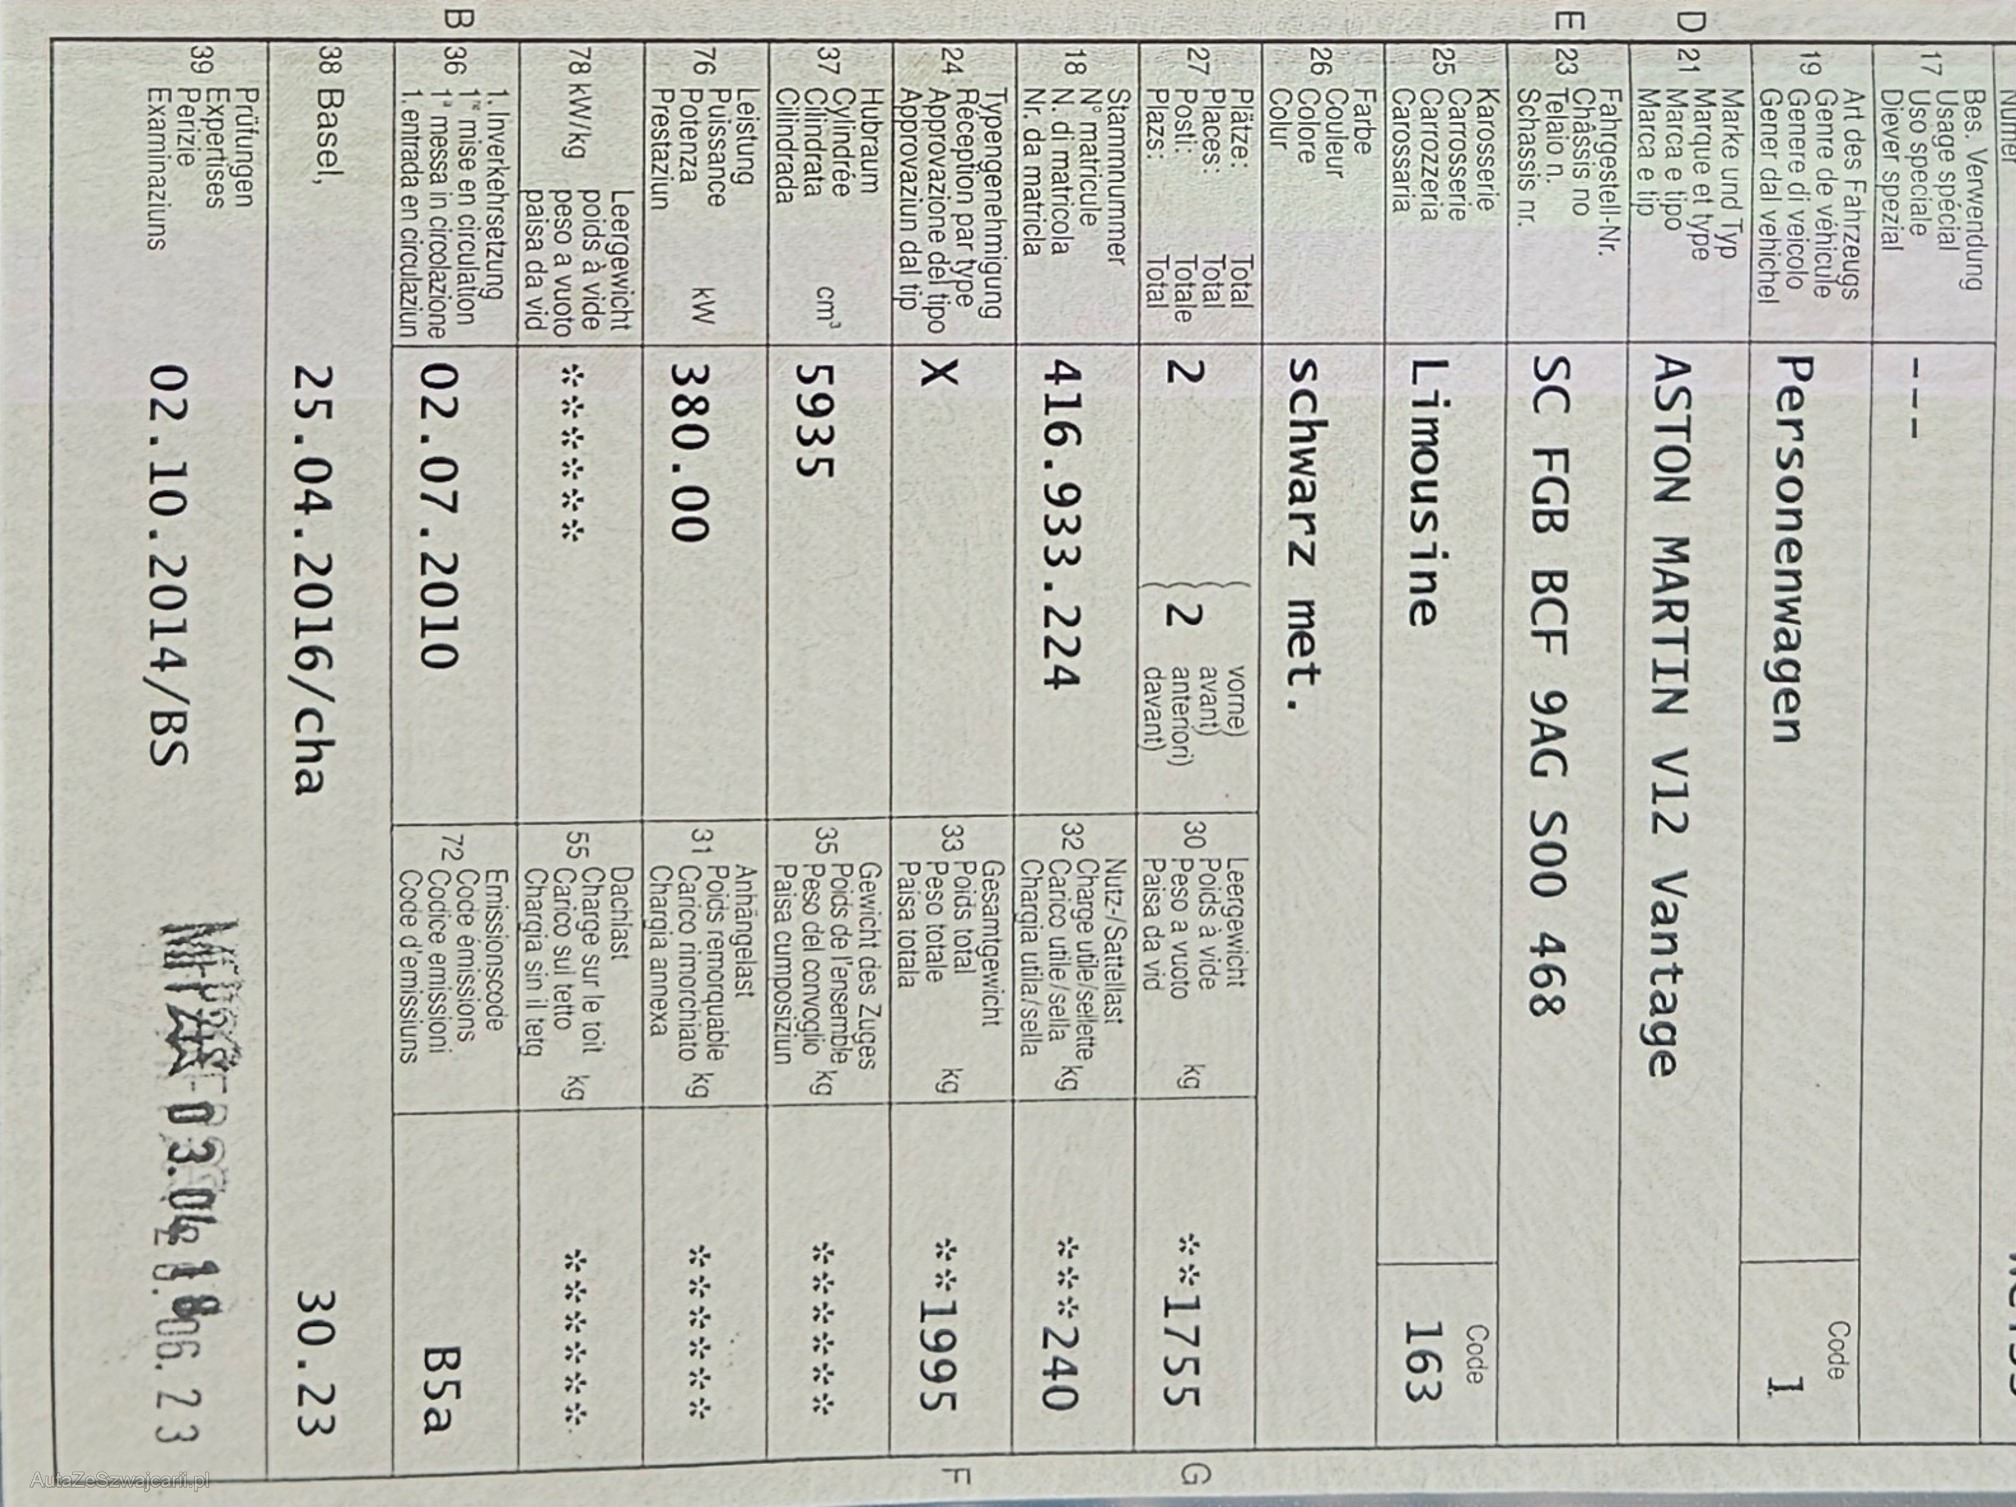 Bes. Verwendung
Usage spécial
17 Uso speciale
Diever spezial
---
Art des Fahrzeugs
Genre de véhicule
19 Genere di veicolo
Gener dal vehichel
Personenwagen
Code
1
Marke und Typ
Marque et type
D 21 Marca e tipo
Marca e tip
ASTON MARTIN V12 Vantage
Fahrgestell-Nr.
Châssis no
E 23 Telaio n.
Schassis nr.
SC FGB BCF 9AG S00 468
Karosserie
Carrosserie
25 Carrozzeria
Carossaria
Limousine
Code
163
Farbe
Couleur
26 Colore
Colur
schwarz met.
Plätze: Total
Places: Total
27 Posti: Totale
Plazs: Total
2
2
vorne)
avant)
anteriori)
davant)
Leergewicht
Poids à vide
30 Peso a vuoto kg
Paisa da vid
**1755
G
Stammnummer
N° matricule
18 N. di matricola
Nr. da matricla
416.933.224
Nutz-/Sattellast
Charge utile/sellette
32 Carico utile/sella kg
Chargia utila/sella
***240
Typengenehmigung
Réception par type
24 Approvazione del tipo
Approvaziun dal tip
X
Gesamtgewicht
Poids total
33 Peso totale kg
Paisa totala
**1995
F
Hubraum
Cylindrée
37 Cilindrata cm³
Cilindrada
5935
Gewicht des Zuges
Poids de l'ensemble
35 Peso del convoglio kg
Paisa cumposiziun
******
Leistung
Puissance
76 Potenza kW
Prestaziun
380.00
Anhängelast
Poids remorquable
31 Carico rimorchiato kg
Chargia annexa
******
Leergewicht
poids à vide
78 kW/kg peso a vuoto
paisa da vid
******
Dachlast
Charge sur le toit
55 Carico sul tetto kg
Chargia sin il tetg
******
1. Inverkehrsetzung
1re mise en circulation
B 36 1a messa in circolazione
1. entrada en circulaziun
02.07.2010
Emissionscode
Code émissions
72 Codice emissioni
Code d'emissiuns
B5a
38 Basel,
25.04.2016/cha
30.23
Prüfungen
Expertises
39 Perizie
Examinaziuns
02.10.2014/BS
AutaZeSzwajcarii.pl